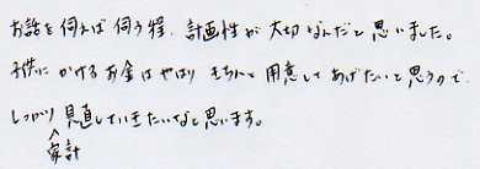 お話を伺えば伺う程、計画性が大切なんだと思いました。
子供にかけるお金はやはりきちんと用意してあげたいと思うので、
しっかり見直していきたいなと思います。
家計